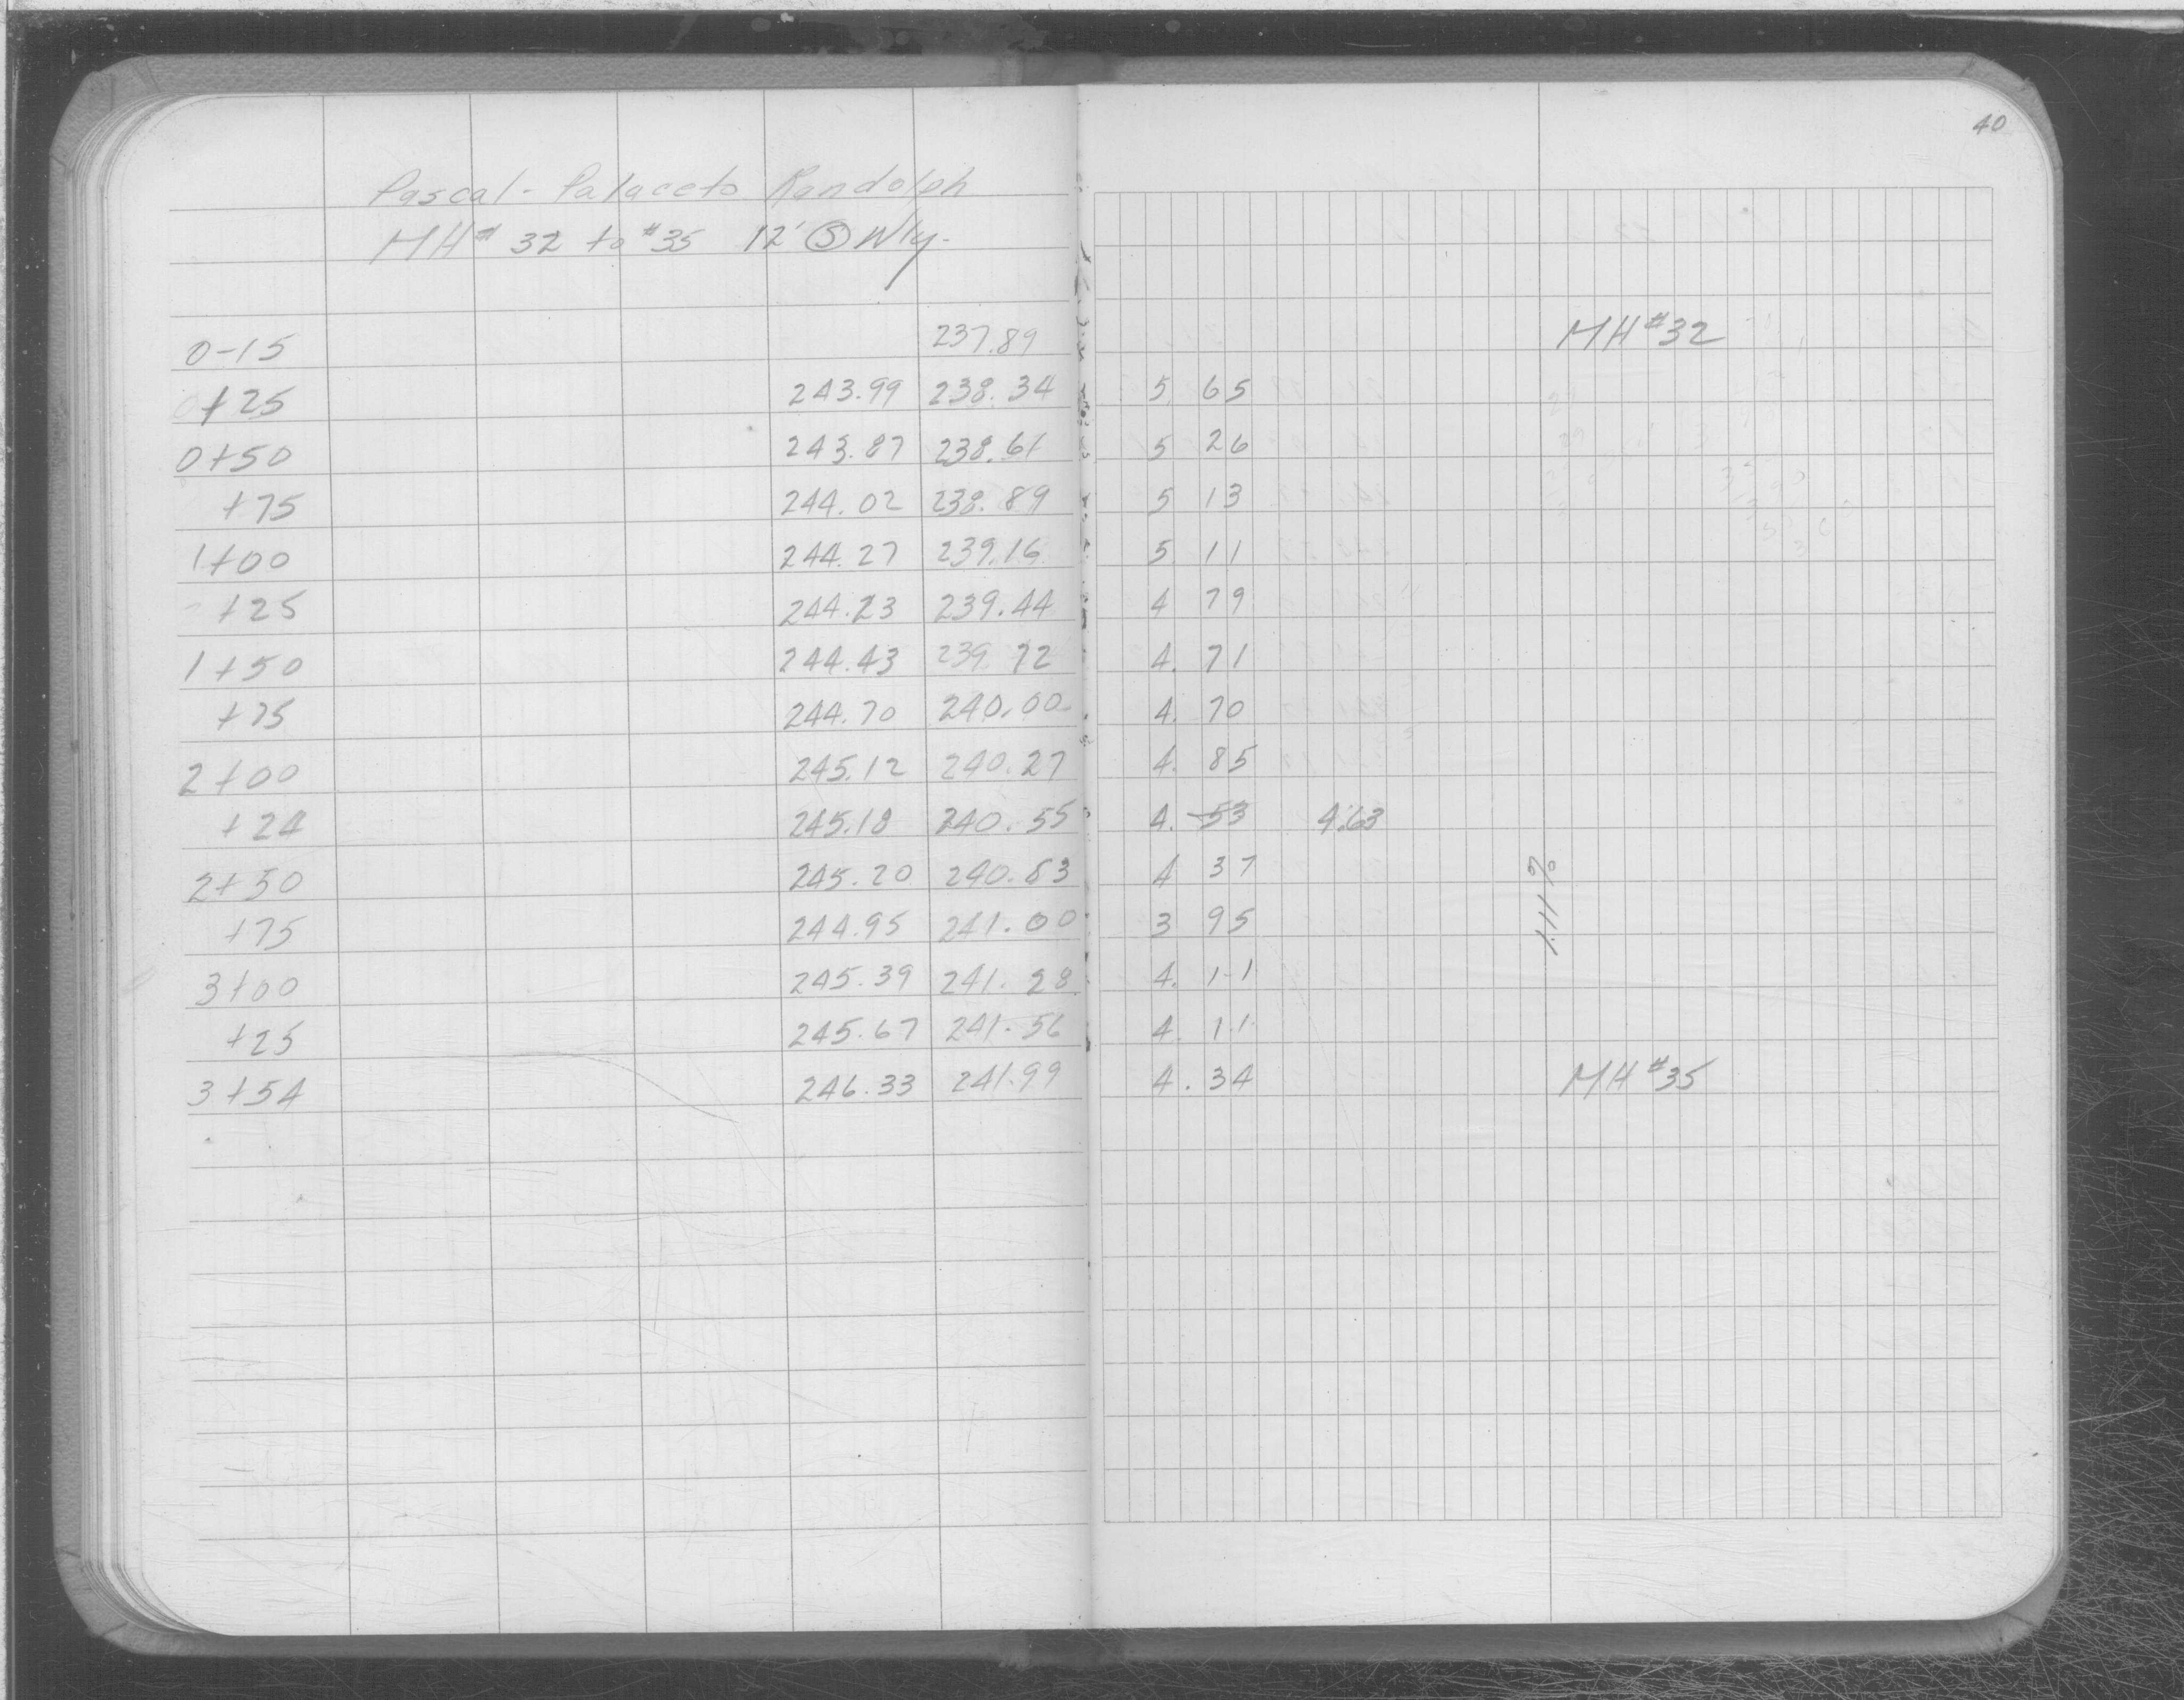 40
Pascal - Palace to Randolph
MH# 32 to #35 12' Ⓢ Wly.
0-15 237.89 MH #32
0+25 243.99 238.34 5. 65
0+50 243.87 238.61 5 26
+75 244.02 238.89 5 13
1+00 244.27 239.16 5 11
+25 244.23 239.44 4 79
1+50 244.43 239.72 4. 71
+75 244.70 240.00 4. 70
2+00 245.12 240.27 4. 85
+24 245.18 240.55 4. 53 4.63
2+50 245.20 240.83 4 37
+75 244.95 241.00 3 95
1.11%
3+00 245.39 241.28 4. 11
+25 245.67 241.56 4. 11
3+54 246.33 241.99 4.34 MH #35